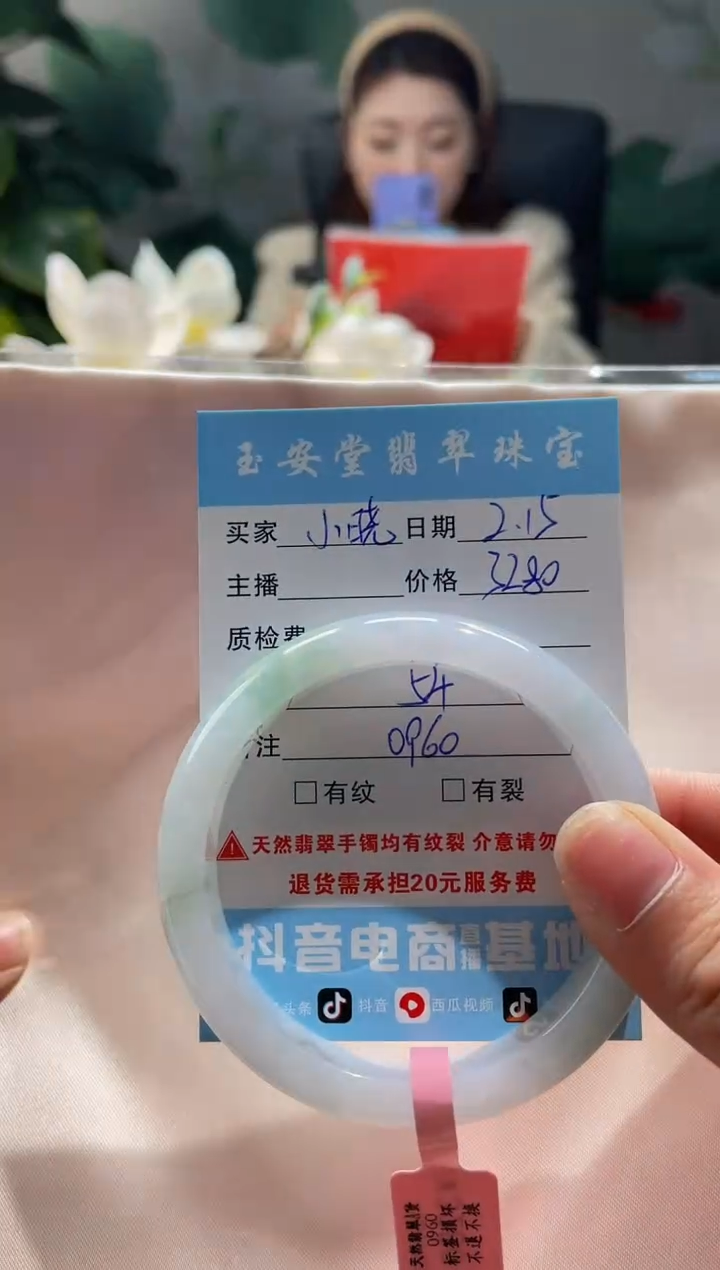 玉安堂翡翠珠宝
买家 小晓 日期 2.15
主播 价格 3280
质检费
54
注 0960
□有纹 □有裂
天然翡翠手镯均有纹裂 介意请勿
退货需承担20元服务费
抖音电商直播基地
头条 抖音 西瓜视频
天然翡翠A货
0960
标签损坏
不退不换